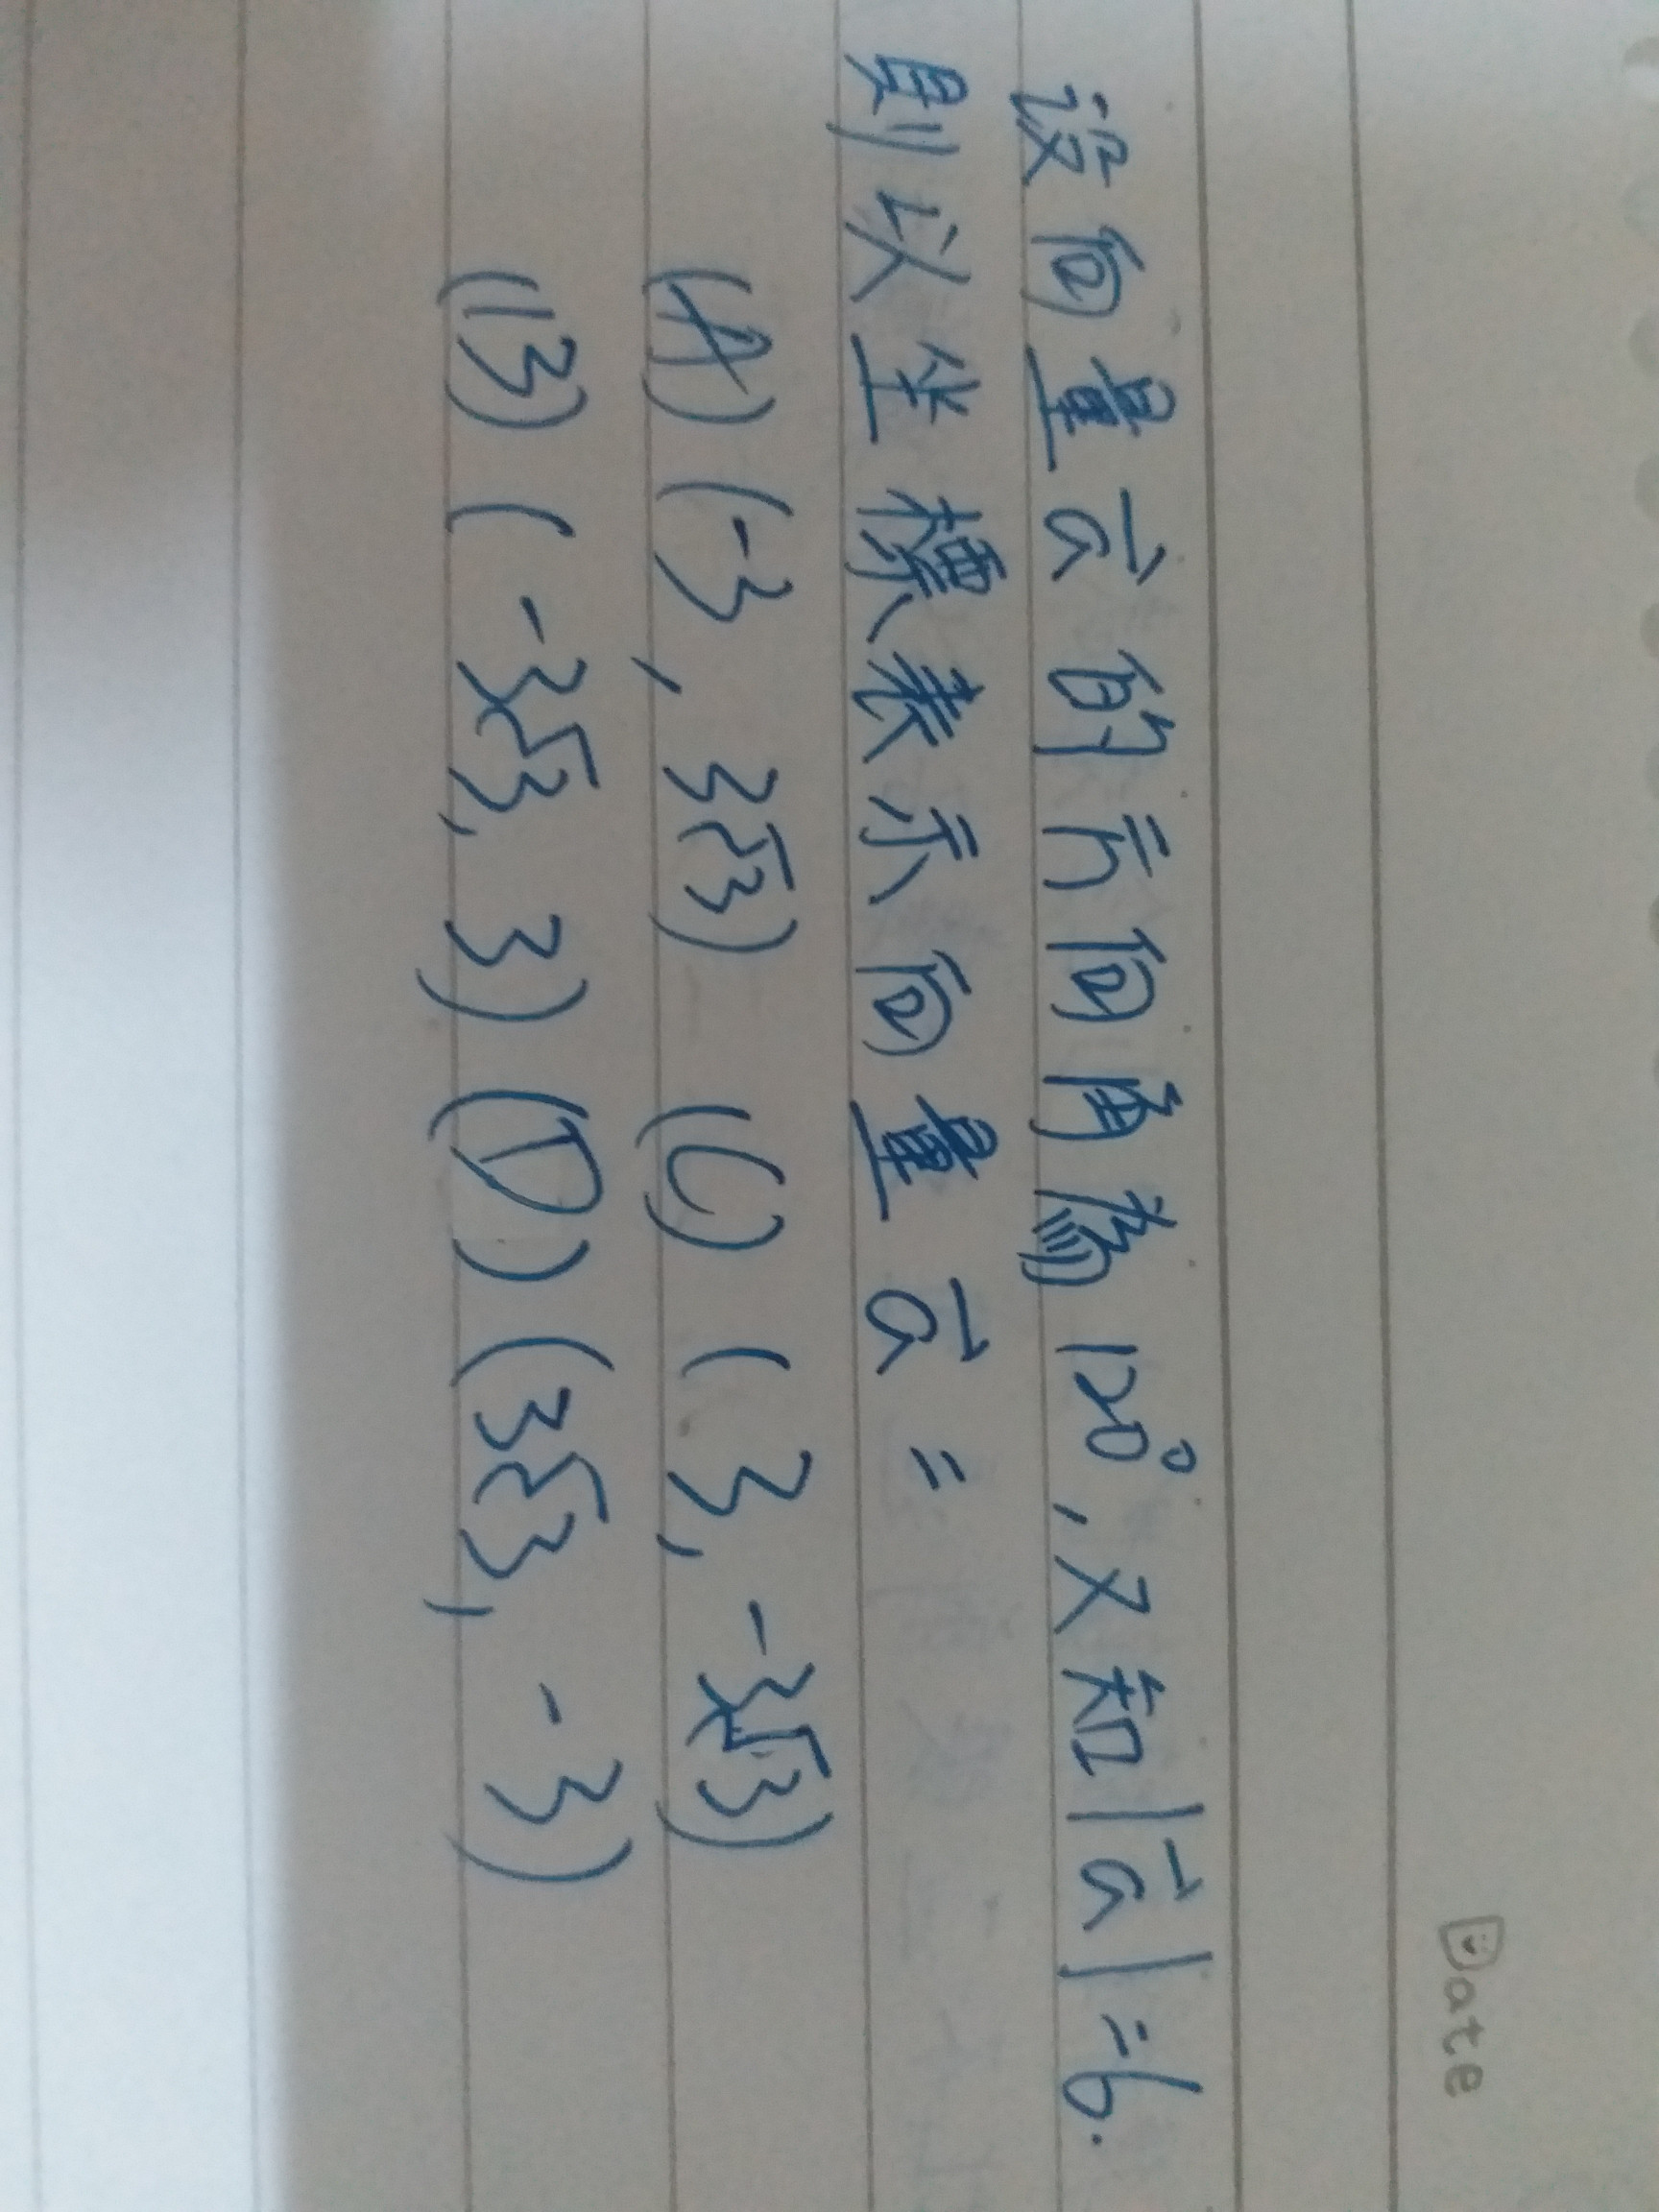 Date
設向量a⃗的方向角為120°,又知|a⃗|=6.
則以坐標表示向量a⃗=
(A)(-3,3√3) (C)(3,-3√3)
(B)(-3√3,3)(D)(3√3,-3)